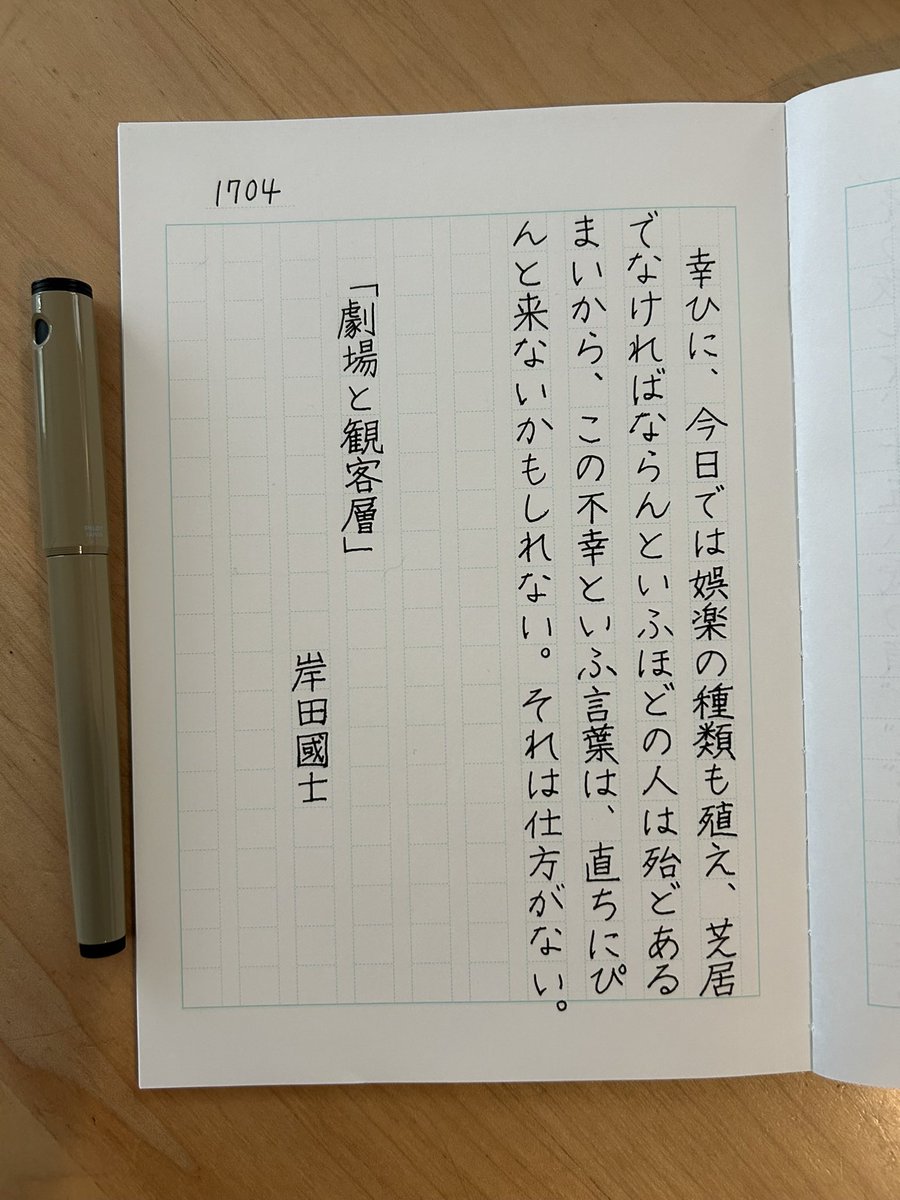 1704
幸ひに、今日では娯楽の種類も殖え、芝居
でなければならんといふほどの人は殆どある
まいから、この不幸といふ言葉は、直ちにぴ
んと来ないかもしれない。それは仕方がない。
「劇場と観客層」
岸田國士